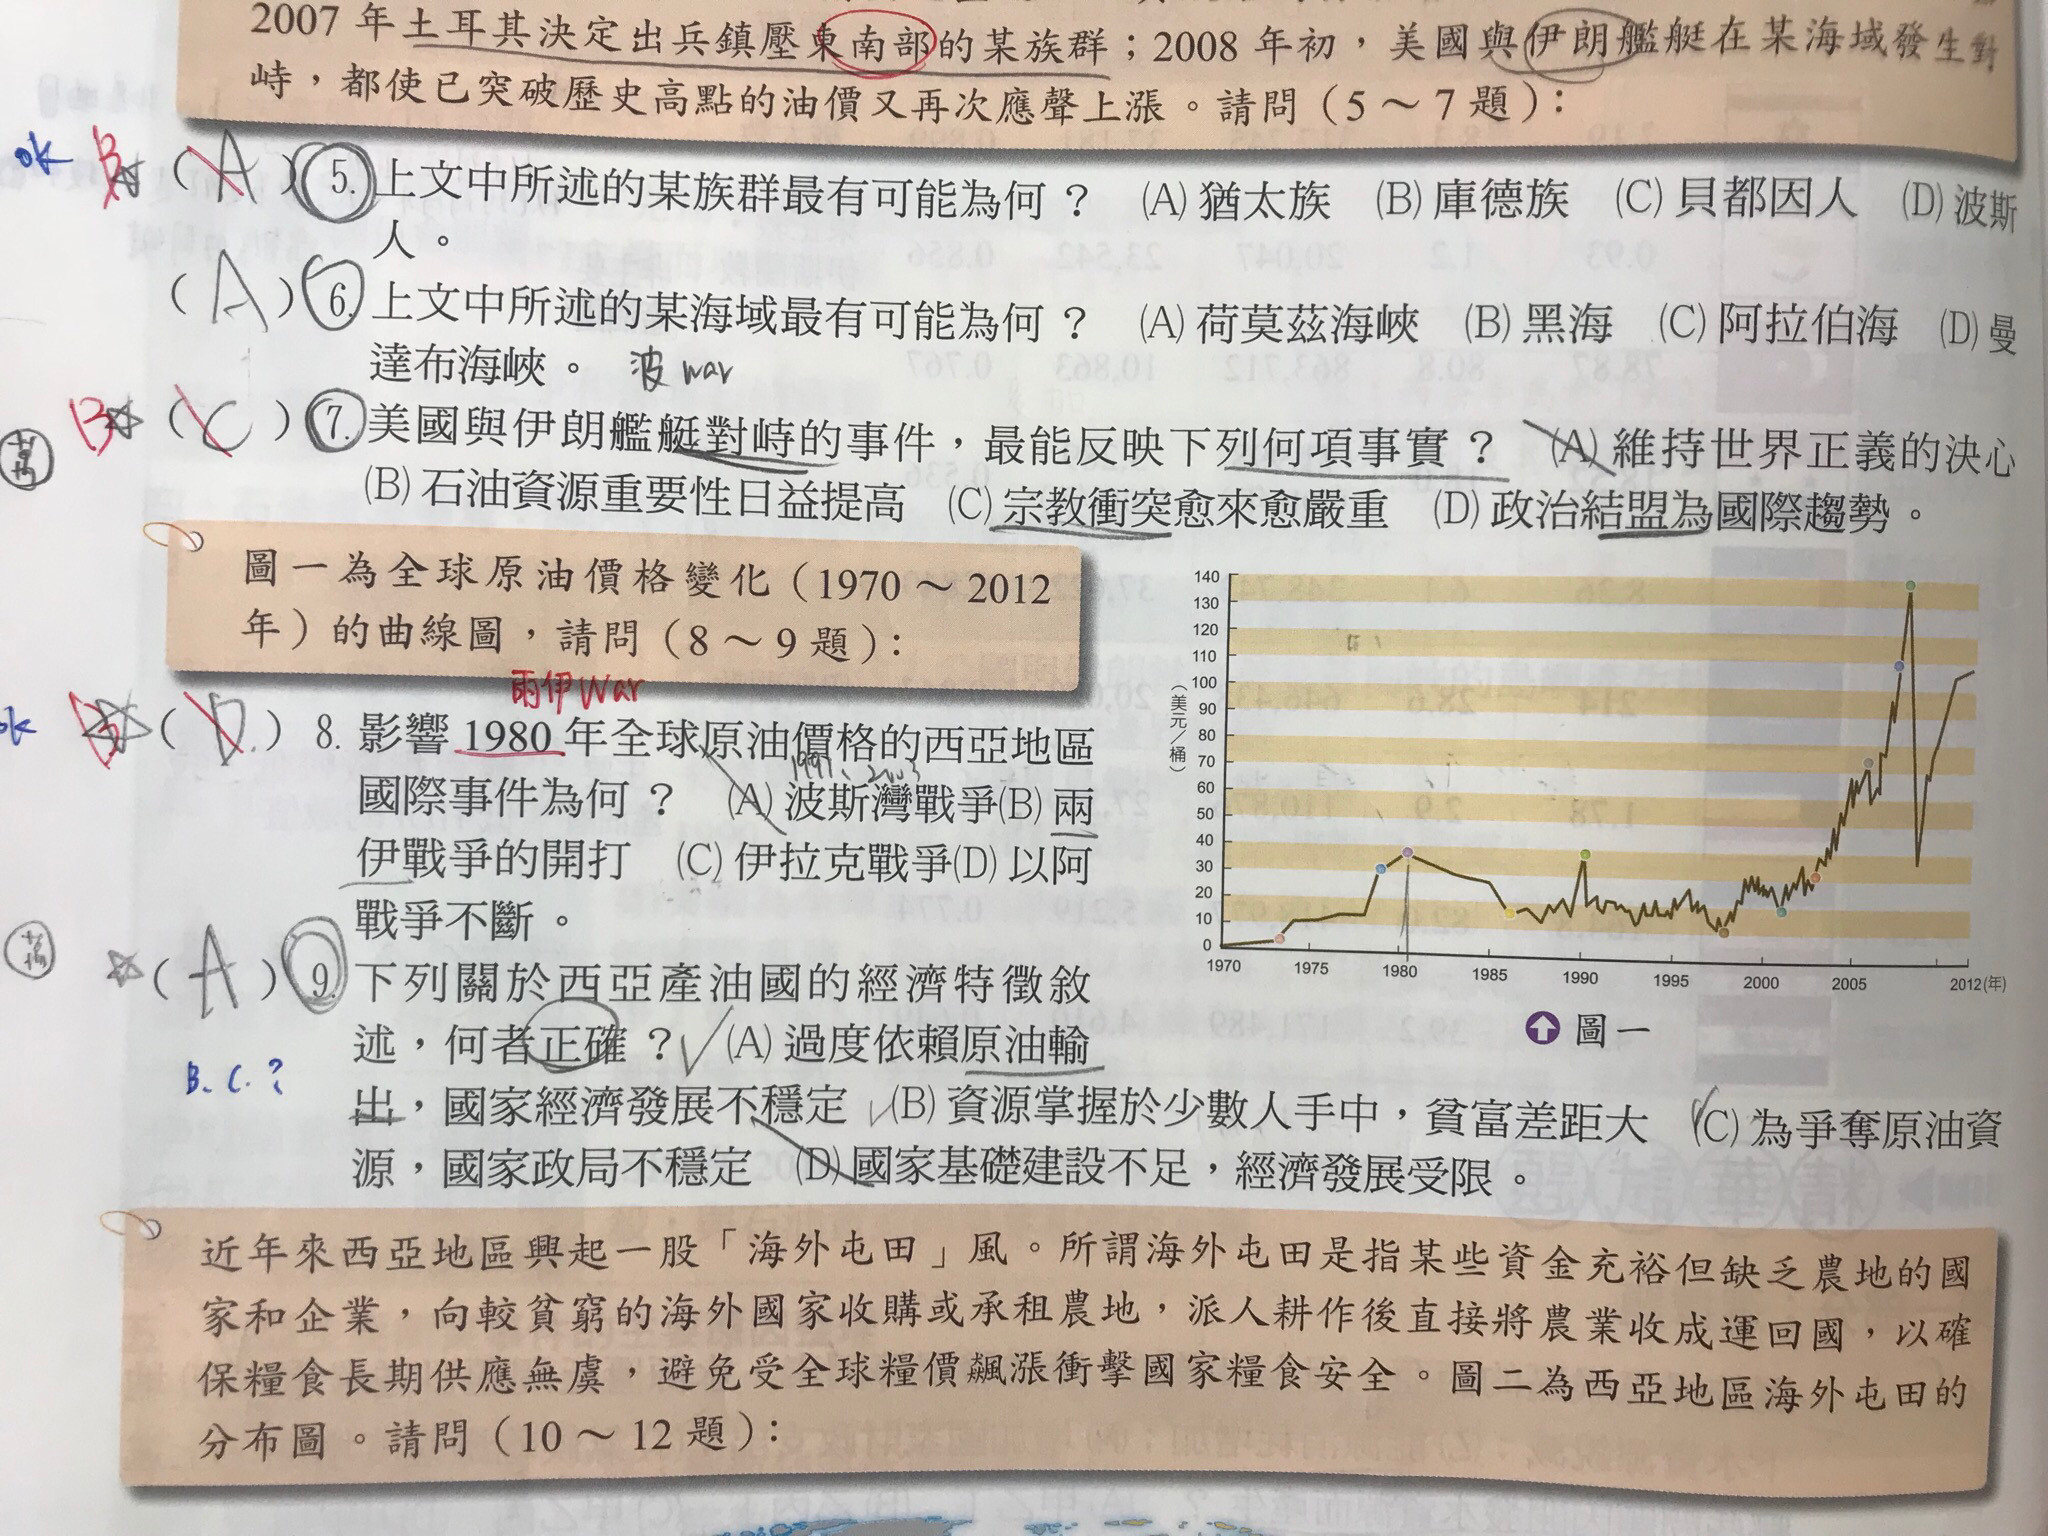 2007 年土耳其決定出兵鎮壓東南部的某族群；2008 年初，美國與伊朗艦艇在某海域發生對
峙，都使已突破歷史高點的油價又再次應聲上漲。請問（5～7 題）：
ok B ☆ (A) 5. 上文中所述的某族群最有可能為何？ (A) 猶太族 (B) 庫德族 (C) 貝都因人 (D) 波斯
人。
(A) 6. 上文中所述的某海域最有可能為何？ (A) 荷莫茲海峽 (B) 黑海 (C) 阿拉伯海 (D) 曼
達布海峽。 波 war
B ☆ (C) 7. 美國與伊朗艦艇對峙的事件，最能反映下列何項事實？ (A) 維持世界正義的決心
(B) 石油資源重要性日益提高 (C) 宗教衝突愈來愈嚴重 (D) 政治結盟為國際趨勢。
圖一為全球原油價格變化（1970～2012
年）的曲線圖，請問（8～9 題）：
兩伊 War
ok B ☆ (D) 8. 影響 1980 年全球原油價格的西亞地區
1991、2003
國際事件為何？ (A) 波斯灣戰爭(B) 兩
伊戰爭的開打 (C) 伊拉克戰爭(D) 以阿
戰爭不斷。
☆ (A) 9. 下列關於西亞產油國的經濟特徵敘
述，何者正確？ (A) 過度依賴原油輸
B. C. ?
出，國家經濟發展不穩定 (B) 資源掌握於少數人手中，貧富差距大 (C) 為爭奪原油資
源，國家政局不穩定 (D) 國家基礎建設不足，經濟發展受限。
140
130
120
110
100
90
80
70
60
50
40
30
20
10
0
（美元／桶）
1970 1975 1980 1985 1990 1995 2000 2005 2012(年)
圖一
近年來西亞地區興起一股「海外屯田」風。所謂海外屯田是指某些資金充裕但缺乏農地的國
家和企業，向較貧窮的海外國家收購或承租農地，派人耕作後直接將農業收成運回國，以確
保糧食長期供應無虞，避免受全球糧價飆漲衝擊國家糧食安全。圖二為西亞地區海外屯田的
分布圖。請問（10～12 題）：